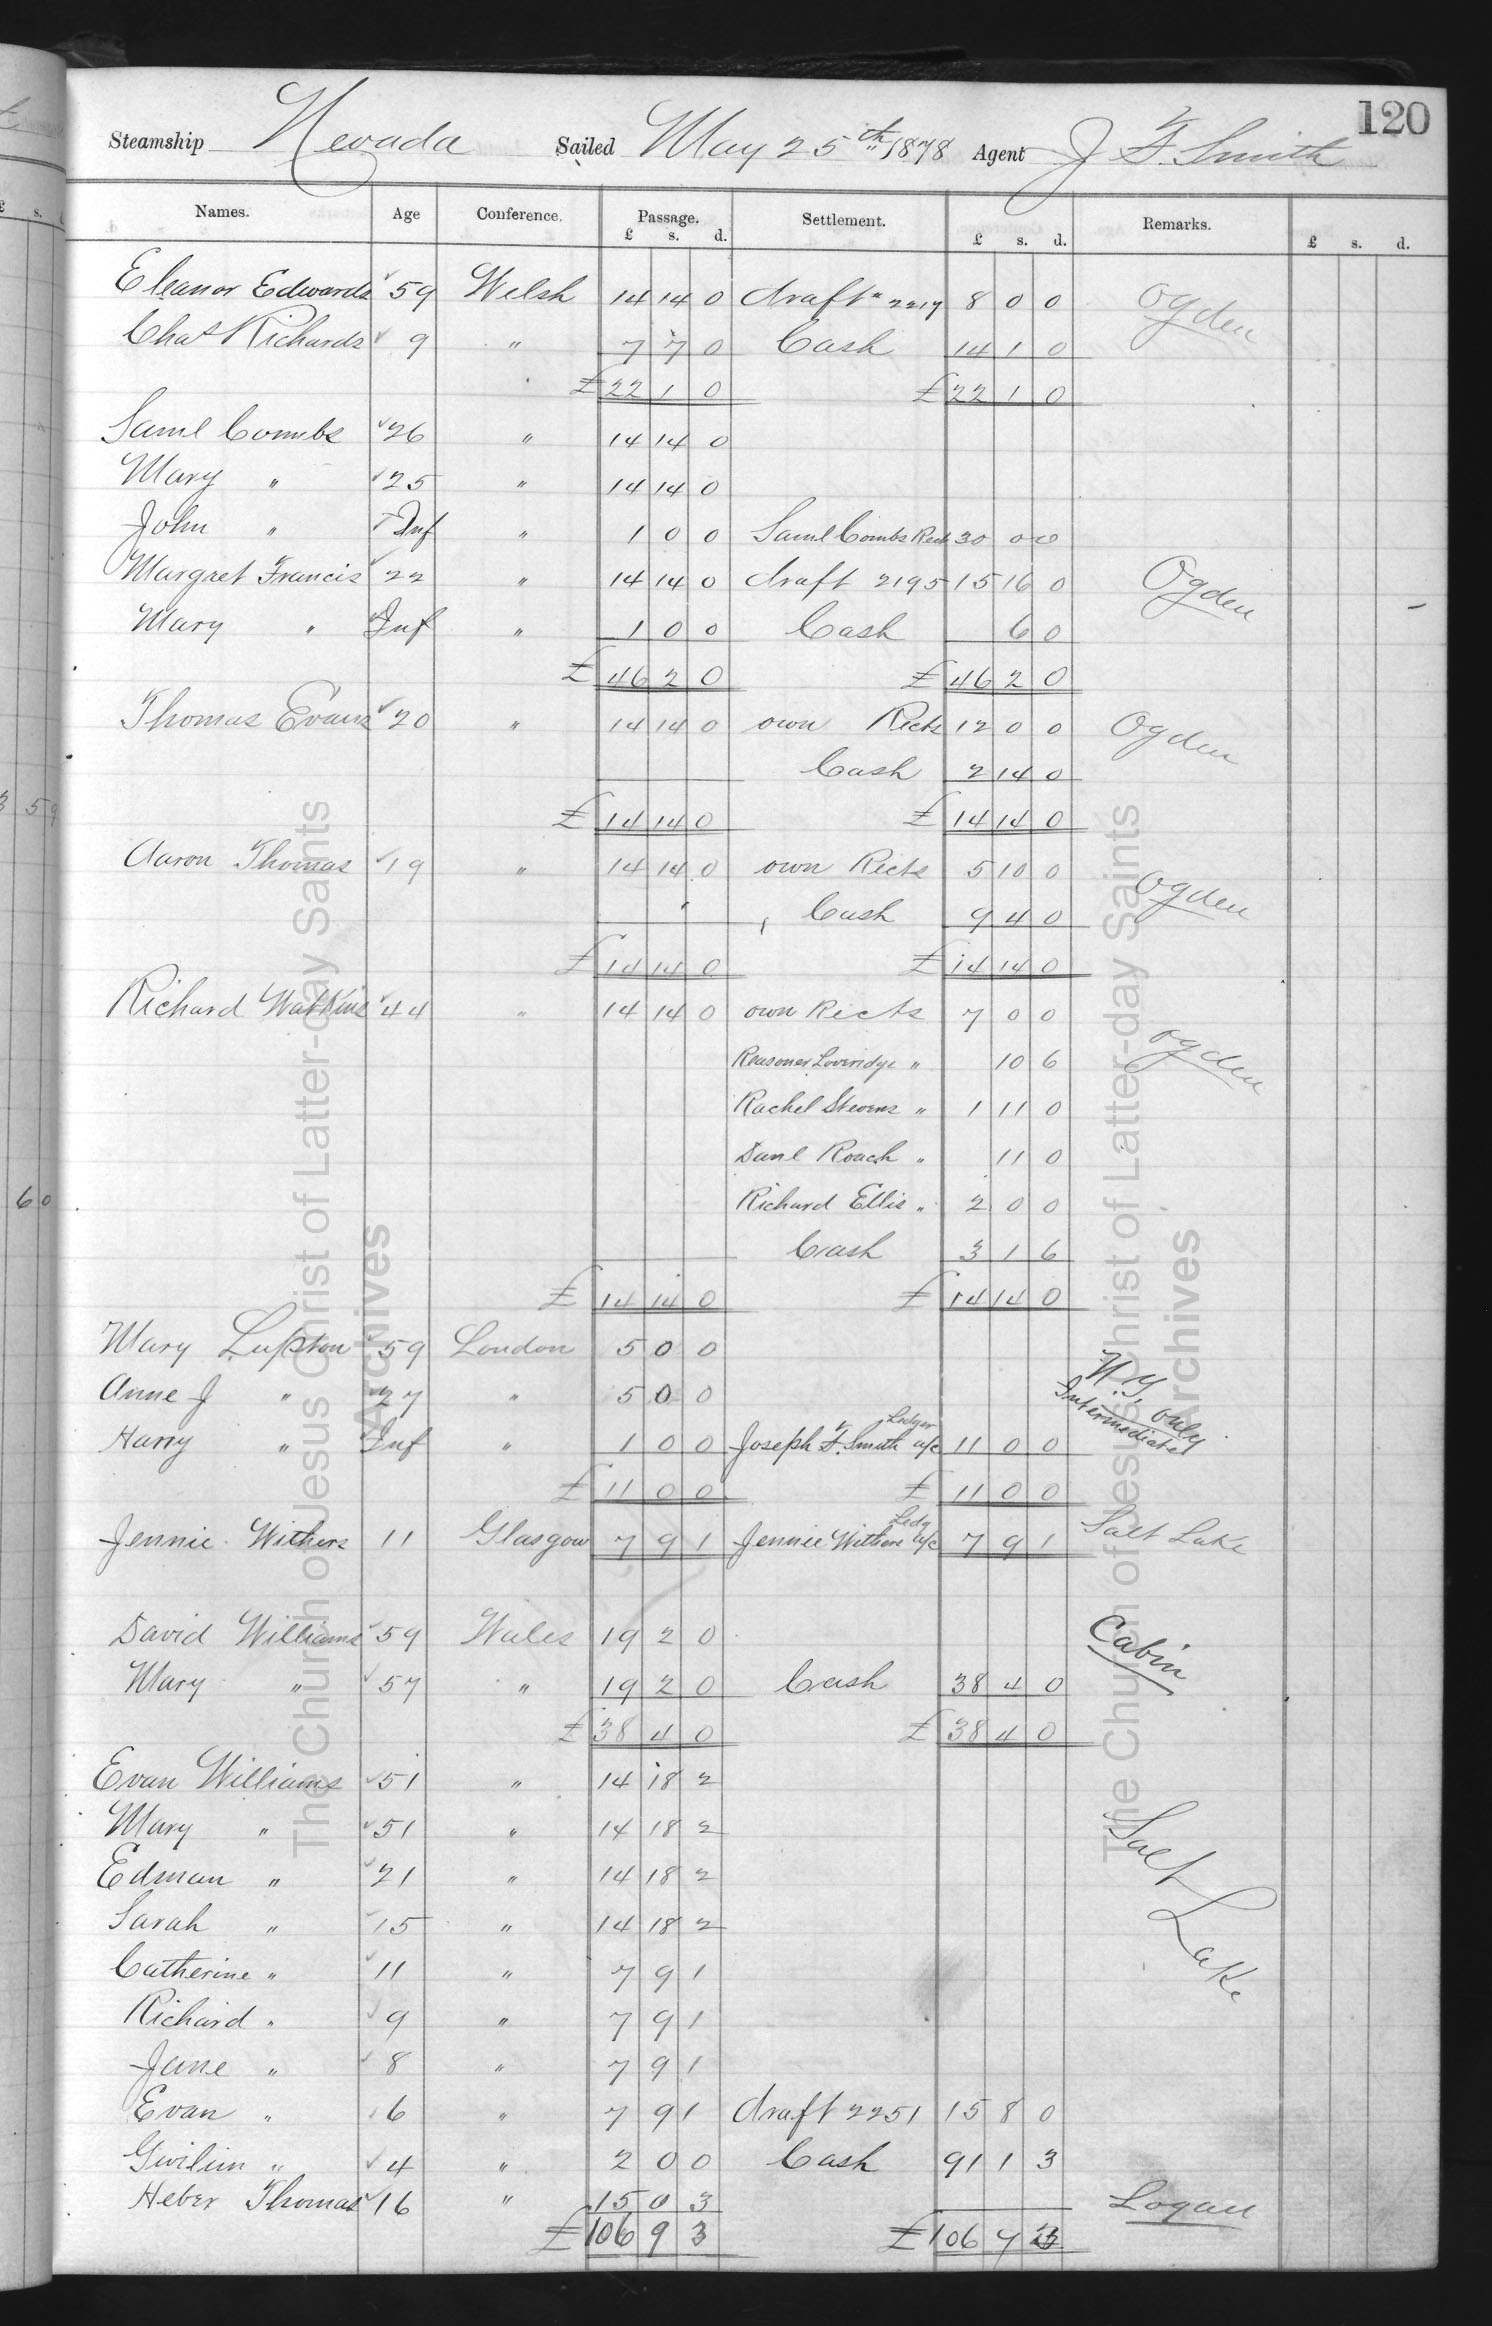 120
Steamship Nevada Sailed May 25th 1878 Agent J F. Smith
Names. Age Conference. Passage. Settlement. Remarks.
£ s. d. £ s. d. £ s. d.
Eleanor Edwards 59 Welsh 14 14 0 draft " 2219 8 0 0 Ogden
Chas Richards 9 " 7 7 0 Cash 14 1 0
£ 22 1 0 £ 22 1 0
Saml Combs 26 " 14 14 0
Mary " 25 " 14 14 0
John " Inf " 1 0 0 Saml Combs Rect 30 0 0
Margret Francis 22 " 14 14 0 draft 2195 15 16 0 Ogden
Mary " Inf " 1 0 0 Cash 6 0
£ 46 2 0 £ 46 2 0
Thomas Evans 20 " 14 14 0 own Rects 12 0 0 Ogden
Cash 2 14 0
£ 14 14 0 £ 14 14 0
Aaron Thomas 19 " 14 14 0 own Rects 5 10 0 Ogden
Cash 9 4 0
£ 14 14 0 £ 14 14 0
Richard Watkins 44 " 14 14 0 own Rects 7 0 0 Ogden
Reasoner Loveridge " 10 6
Rachel Stevens " 1 11 0
Danl Roach " 11 0
Richard Ellis " 2 0 0
Cash 3 1 6
£ 14 14 0 £ 14 14 0
Mary Lupton 59 London 5 0 0
Anne J " 27 " 5 0 0 N.Y. only
Intermediate
Harry " Inf " 1 0 0 Joseph F. Smith Ledger a/c 11 0 0
£ 11 0 0 £ 11 0 0
Jennie Withers 11 Glasgow 7 9 1 Jennie Withers Ledg a/c 7 9 1 Salt Lake
David Williams 59 Wales 19 2 0 Cabin
Mary " 57 " 19 2 0 Cash 38 4 0
£ 38 4 0 £ 38 4 0
Evan Williams 51 " 14 18 2
Mary " 51 " 14 18 2 Salt Lake
Edman " 21 " 14 18 2
Sarah " 15 " 14 18 2
Catherine " 11 " 7 9 1
Richard " 9 " 7 9 1
Jane " 8 " 7 9 1
Evan " 6 " 7 9 1 draft 2251 15 8 0
Gwilim " 4 " 2 0 0 Cash 91 1 3
Heber Thomas 16 " 15 0 3 Logan
£ 106 9 3 £ 106 9 3
The Church of Jesus Christ of Latter-day Saints
Archives
The Church of Jesus Christ of Latter-day Saints
Archives
3 59
60